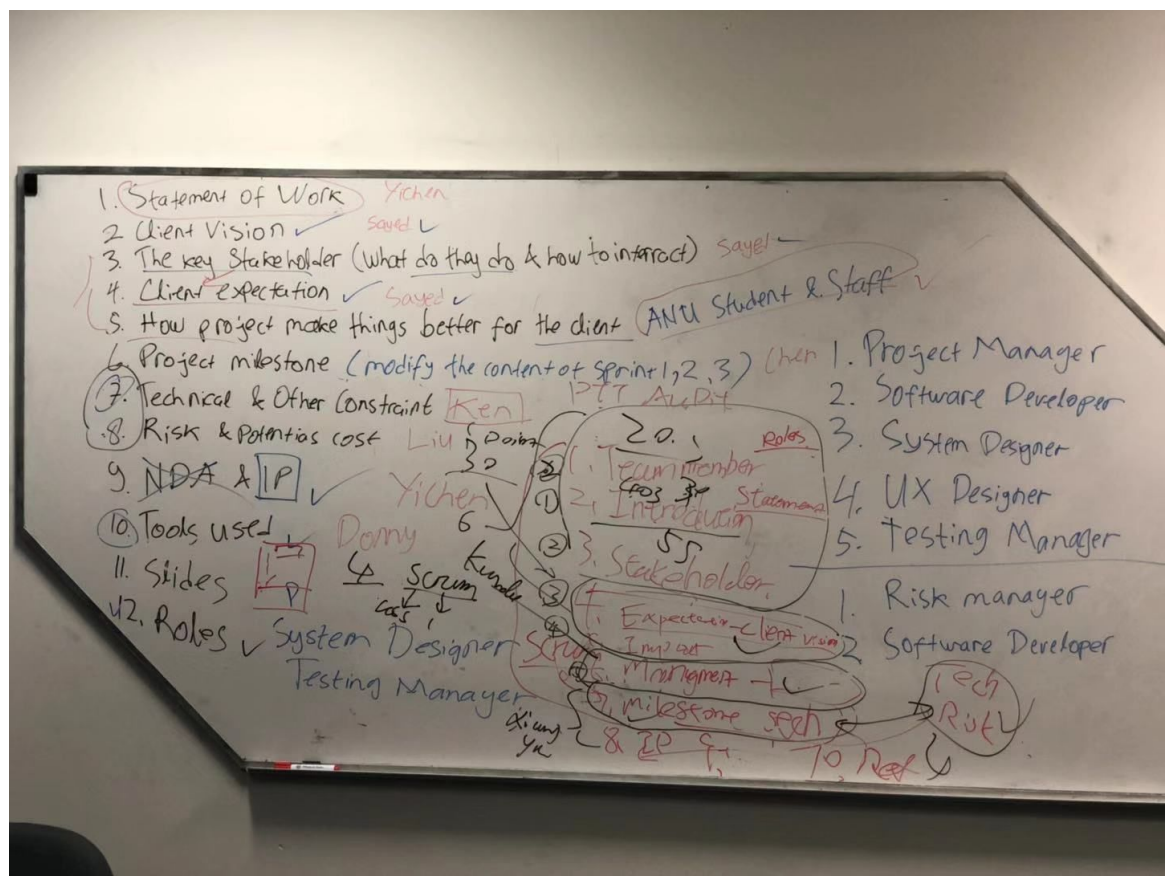 1. Statement of Work Yichen
2 Client Vision ✓ Sayed ✓
3. The key Stakeholder (what do they do & how to interact) Sayed
4. Client expectation ✓ Sayed ✓
5. How project make things better for the client (ANU Student & Staff ✓
6. Project milestone (modify the content of sprint 1, 2, 3)
7. Technical & Other Constraint Ken
8. Risk & Potentias cost Liu
9. NDA & IP ✓ Yichen
10. Tools used Donny
11. Slides
12. Roles ✓ System Designer
Testing Manager
Scrum
30
6
PPT Audit
20.
Roles
1. Teammember
2. Introdution Statement
55
3. Stakeholder
4. Expectation - Client vision
milestone
& IP
1. Project Manager
2. Software Developer
3. System Designer
4. UX Designer
5. Testing Manager
1. Risk manager
2 Software Developer
Tech